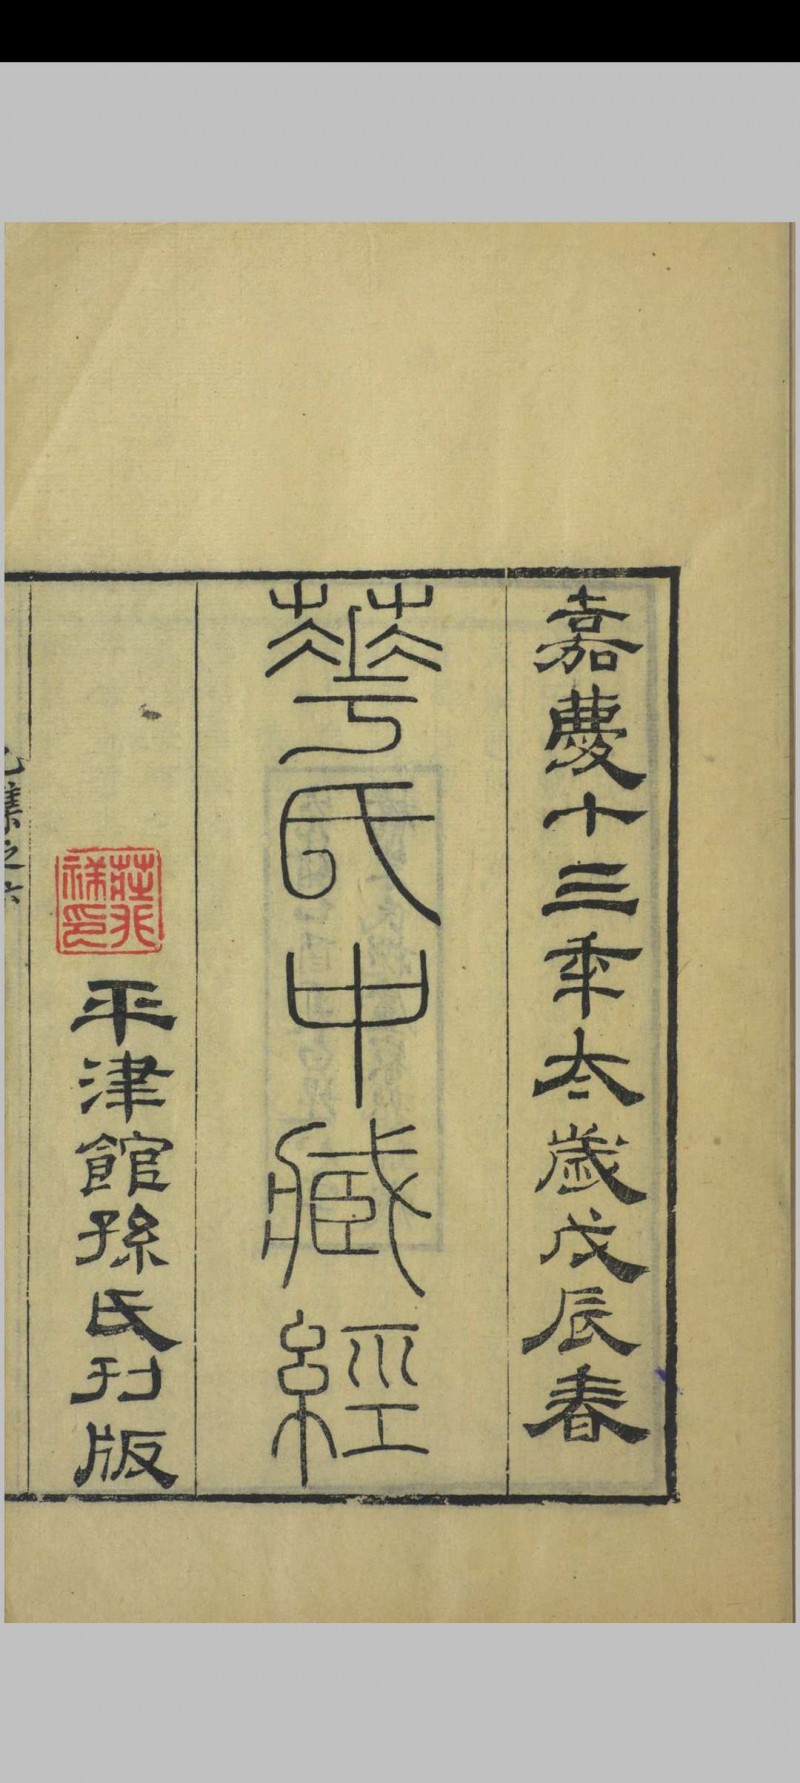 嘉慶十三秊太歲戊辰春
華氏中藏經
莊兆祥印
平津館孫氏刊版